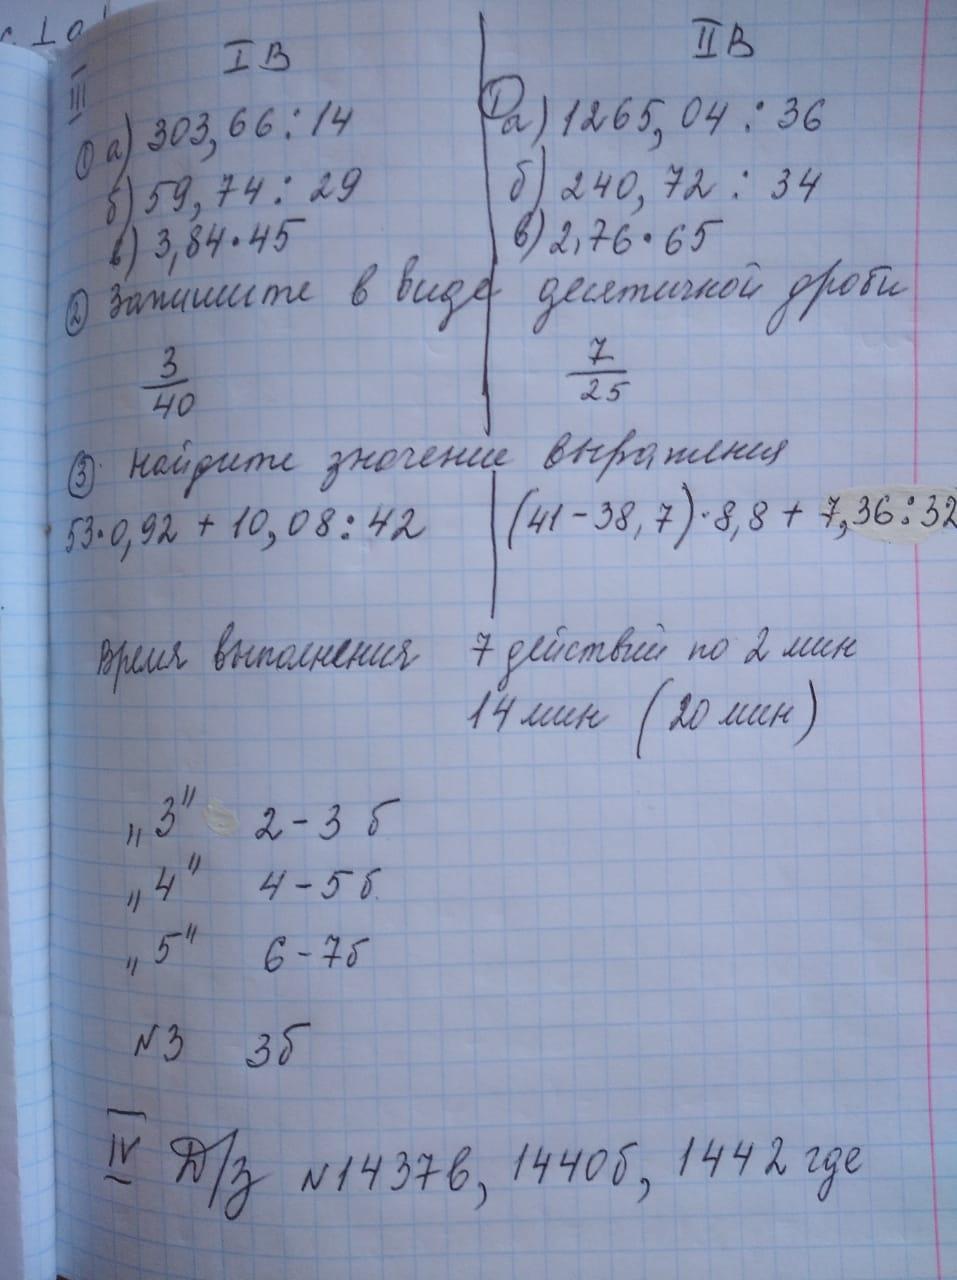 I В II В
III
① а) 303,66 : 14 ① а) 1265,04 : 36
б) 59,74 : 29 б) 240,72 : 34
в) 3,84 · 45 в) 2,76 · 65
② Запишите в виде десятичной дроби
3/40 7/25
③ Найдите значение выражения
53·0,92 + 10,08 : 42 (41 - 38,7) · 8,8 + 7,36 : 32
Время выполнения 7 действий по 2 мин
14 мин (20 мин)
„3" 2 - 3 б
„4" 4 - 5 б.
„5" 6 - 7 б
№3 3 б
IV Д/з №1437в, 1440б, 1442 где